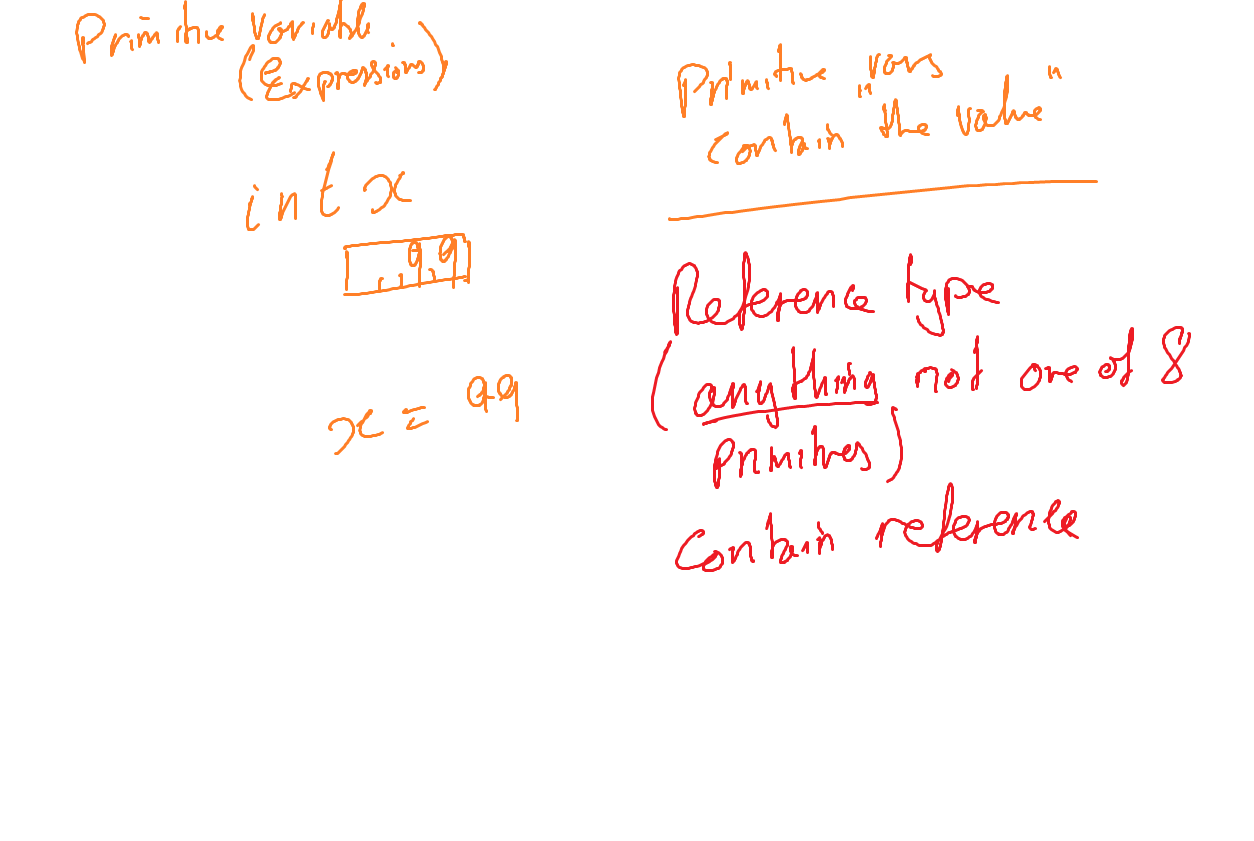 Primitive variable
(Expressions)
int x
,,9,9
x = 99
Primitive vars
contain "the value"
Reference type
(anything not one of 8
primitives)
Contain reference